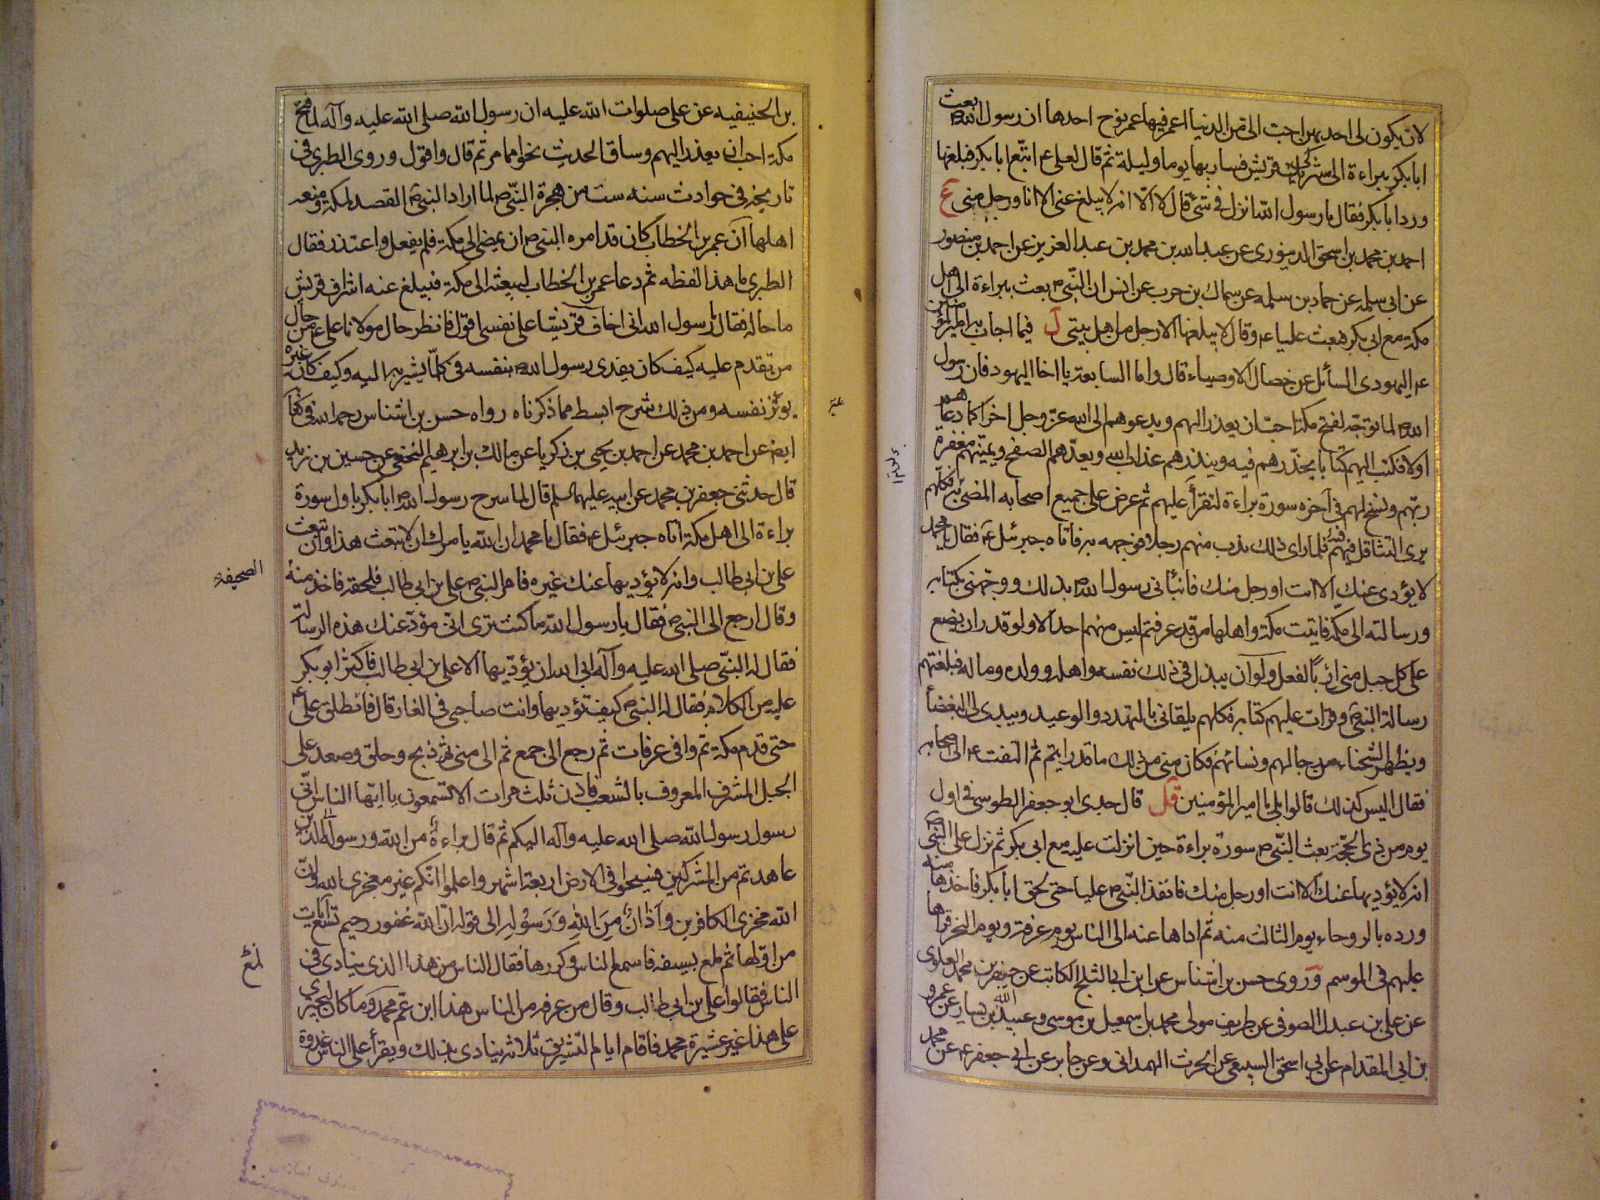 لان يكون لى احديهن احب الى من الدنيا اعمر فيها عمر نوح احدها ان رسول الله بعث
ابا بكر ببراءة الى مشركى قريش فسار بها يوما وليلة ثم قال لعلى ع اتبع ابا بكر فبلغها
ورد ابا بكر فقال يا رسول الله انزل فى شئ قال لا الا انه لا يبلغ عنى الا انا او رجل منى ع
احمد بن محمد بن اسحق الدينورى عن عبد الله بن محمد بن عبد العزيز عن احمد بن منصور
عن ابى سلمه عن حماد بن سلمه عن سماك بن حرب عن انس ان النبى ص بعث ببراءة الى اهل
مكة مع ابى بكر فبعث عليا ع وقال لا يبلغها الا رجل من اهل بيتى ل فيما اجاب به امير المؤمنين
ع اليهودى السائل عن خصال الاوصياء قال واما السابعة يا اخا اليهود فان رسول
الله ص لما توجه لفتح مكة احب ان يعذر اليهم ويدعوهم الى الله عز وجل اخرا كما دعاهم
اولا فكتب اليهم كتابا يحذرهم فيه وينذرهم عذاب الله ويعدهم الصفح ويمنيهم مغفرة
ربهم ونسخ لهم فى آخره سورة براءة لتقرأ عليهم ثم عرض على جميع اصحابه المضى به فكلهم
يرى التثاقل فيهم فلما راى ذلك ندب منهم رجلا فوجهه به فاتاه جبرئيل ع فقال يا محمد
لا يؤدى عنك الا انت او رجل منك فانبأنى رسول الله ص بذلك ووجهنى بكتابه
ورسالته الى مكة فاتيت مكة واهلها من قد عرفتم ليس منهم احد الا ولو قدر ان يضع
على كل جبل منى اربا لفعل ولو ان يبذل فى ذلك نفسه واهله وولده وماله فبلغتهم
رسالة النبى ص وقرات عليهم كتابه فكلهم يلقانى بالتهدد والوعيد ويبدى لى البغضاء
ويظهر الشحناء من رجالهم ونسائهم فكان منى فى ذلك ما قد رايتم ثم التفت ع الى اصحابه
فقال اليس كذلك قالوا بلى يا امير المؤمنين قل قال جدى ابو جعفر الطوسى فى اول
يوم من ذى الحجة بعث النبى ص سورة براءة حين انزلت عليه مع ابى بكر ثم نزل على النبى ص
انه لا يؤديها عنك الا انت او رجل منك فانفذ النبى ص عليا حتى لحق ابا بكر فاخذها منه
ورده بالروحاء يوم الثالث منه ثم اداها عنه الى الناس يوم عرفة ويوم النحر قراها
عليهم فى الموسم وروى حسن بن اشناس عن ابن ابى الثلج الكاتب عن جعفر بن محمد العلوى
عن على بن عبدل الصوفى عن طريف مولى محمد بن اسمعيل بن موسى وعبيد الله بن يسار عن عمرو
بن ابى المقدام عن ابى اسحق السبيعى عن الحرث الهمدانى وعن جابر عن ابى جعفر ع عن محمد
بن الحنيفيه عن على صلوات الله عليه ان رسول الله صلى الله عليه وآله لما فتح
مكة احب ان يعذر اليهم وساق الحديث نحوا مما مر ثم قال واقول وروى الطبرى فى
تاريخه فى حوادث سنه ست من هجرة النبى ص لما اراد النبى ص القصد لمكة ومنعه
اهلها ان عمر بن الخطاب كان قد امره النبى ص ان يمضى الى مكة فلم يفعل واعتذر فقال
الطبرى ما هذا لفظه ثم دعا عمر بن الخطاب ليبعثه الى مكة فيبلغ عنه اشراف قريش
ما حاله فقال يا رسول الله انى اخاف قريشا على نفسى اقول فانظر حال مولانا على من حال
من تقدم عليه كيف كان يفدى رسول الله ص بنفسه فى كلما يشير به اليه وكيف كان غيره
يوثر نفسه ومن ذلك شرح ابسط مما ذكرناه رواه حسن بن اشناس رحمه الله فى كتابه
ايضا عن احمد بن محمد عن احمد بن يحيى بن زكريا عن مالك بن ابرهيم النخعى عن حسين بن زيد
قال حدثنى جعفر بن محمد عن ابيه عليهما السلم قال لما سرح رسول الله ص ابا بكر باول سورة
براءة الى اهل مكة اتاه جبرئيل ع فقال يا محمد ان الله يامرك ان لا تبعث هذا وان تبعث
على بن ابى طالب وانه لا يؤديها عنك غيره فامر النبى ص على بن ابى طالب فلحقه فاخذ منه
الصحيفة
وقال ارجع الى النبى ص فقال يا رسول الله ما كنت ترى انى مؤد عنك هذه الرسالة
فقال له النبى صلى الله عليه وآله ابى الله ان يؤديها الا على بن ابى طالب فاكثر ابو بكر
عليه من الكلام فقال له النبى ص كيف تؤديها وانت صاحبى فى الغار قال فانطلق على ع
حتى قدم مكة ثم وافى عرفات ثم رجع الى جمع ثم الى منى ثم ذبح وحلق وصعد على
الجبل المشرف المعروف بالشعب فاذن ثلث مرات الا تسمعون يا ايها الناس انى
رسول رسول الله صلى الله عليه وآله اليكم ثم قال براءة من الله ورسوله الى الذين
عاهدتم من المشركين فسيحوا فى الارض اربعة اشهر واعلموا انكم غير معجزى الله وان
الله مخزى الكافرين واذان من الله ورسوله الى قوله ان الله غفور رحيم تسع آيات
من اولها ثم لمع بسيفه فاسمع الناس وكررها فقال الناس من هذا الذى ينادى فى
الناس فقالوا على بن ابى طالب وقال من عرفه من الناس هذا ابن عم محمد وما كان ليجترى
على هذا غير عشيرة محمد فاقام ايام التشريق ثلاثة ينادى بذلك ويقرأ على الناس غدوة